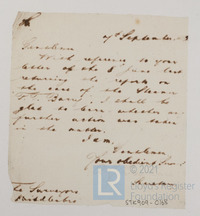 7th September
Gentlemen
With reference to your
letter of the 8 June last
returning the report on
the case of the Steam
I shall be
glad to learn whether any
further action was taken
in the matter.
I am,
Gentlemen
Your obedient Serv
Secretary
The Surveyors
© 2021
Lloyd's Register
Foundation